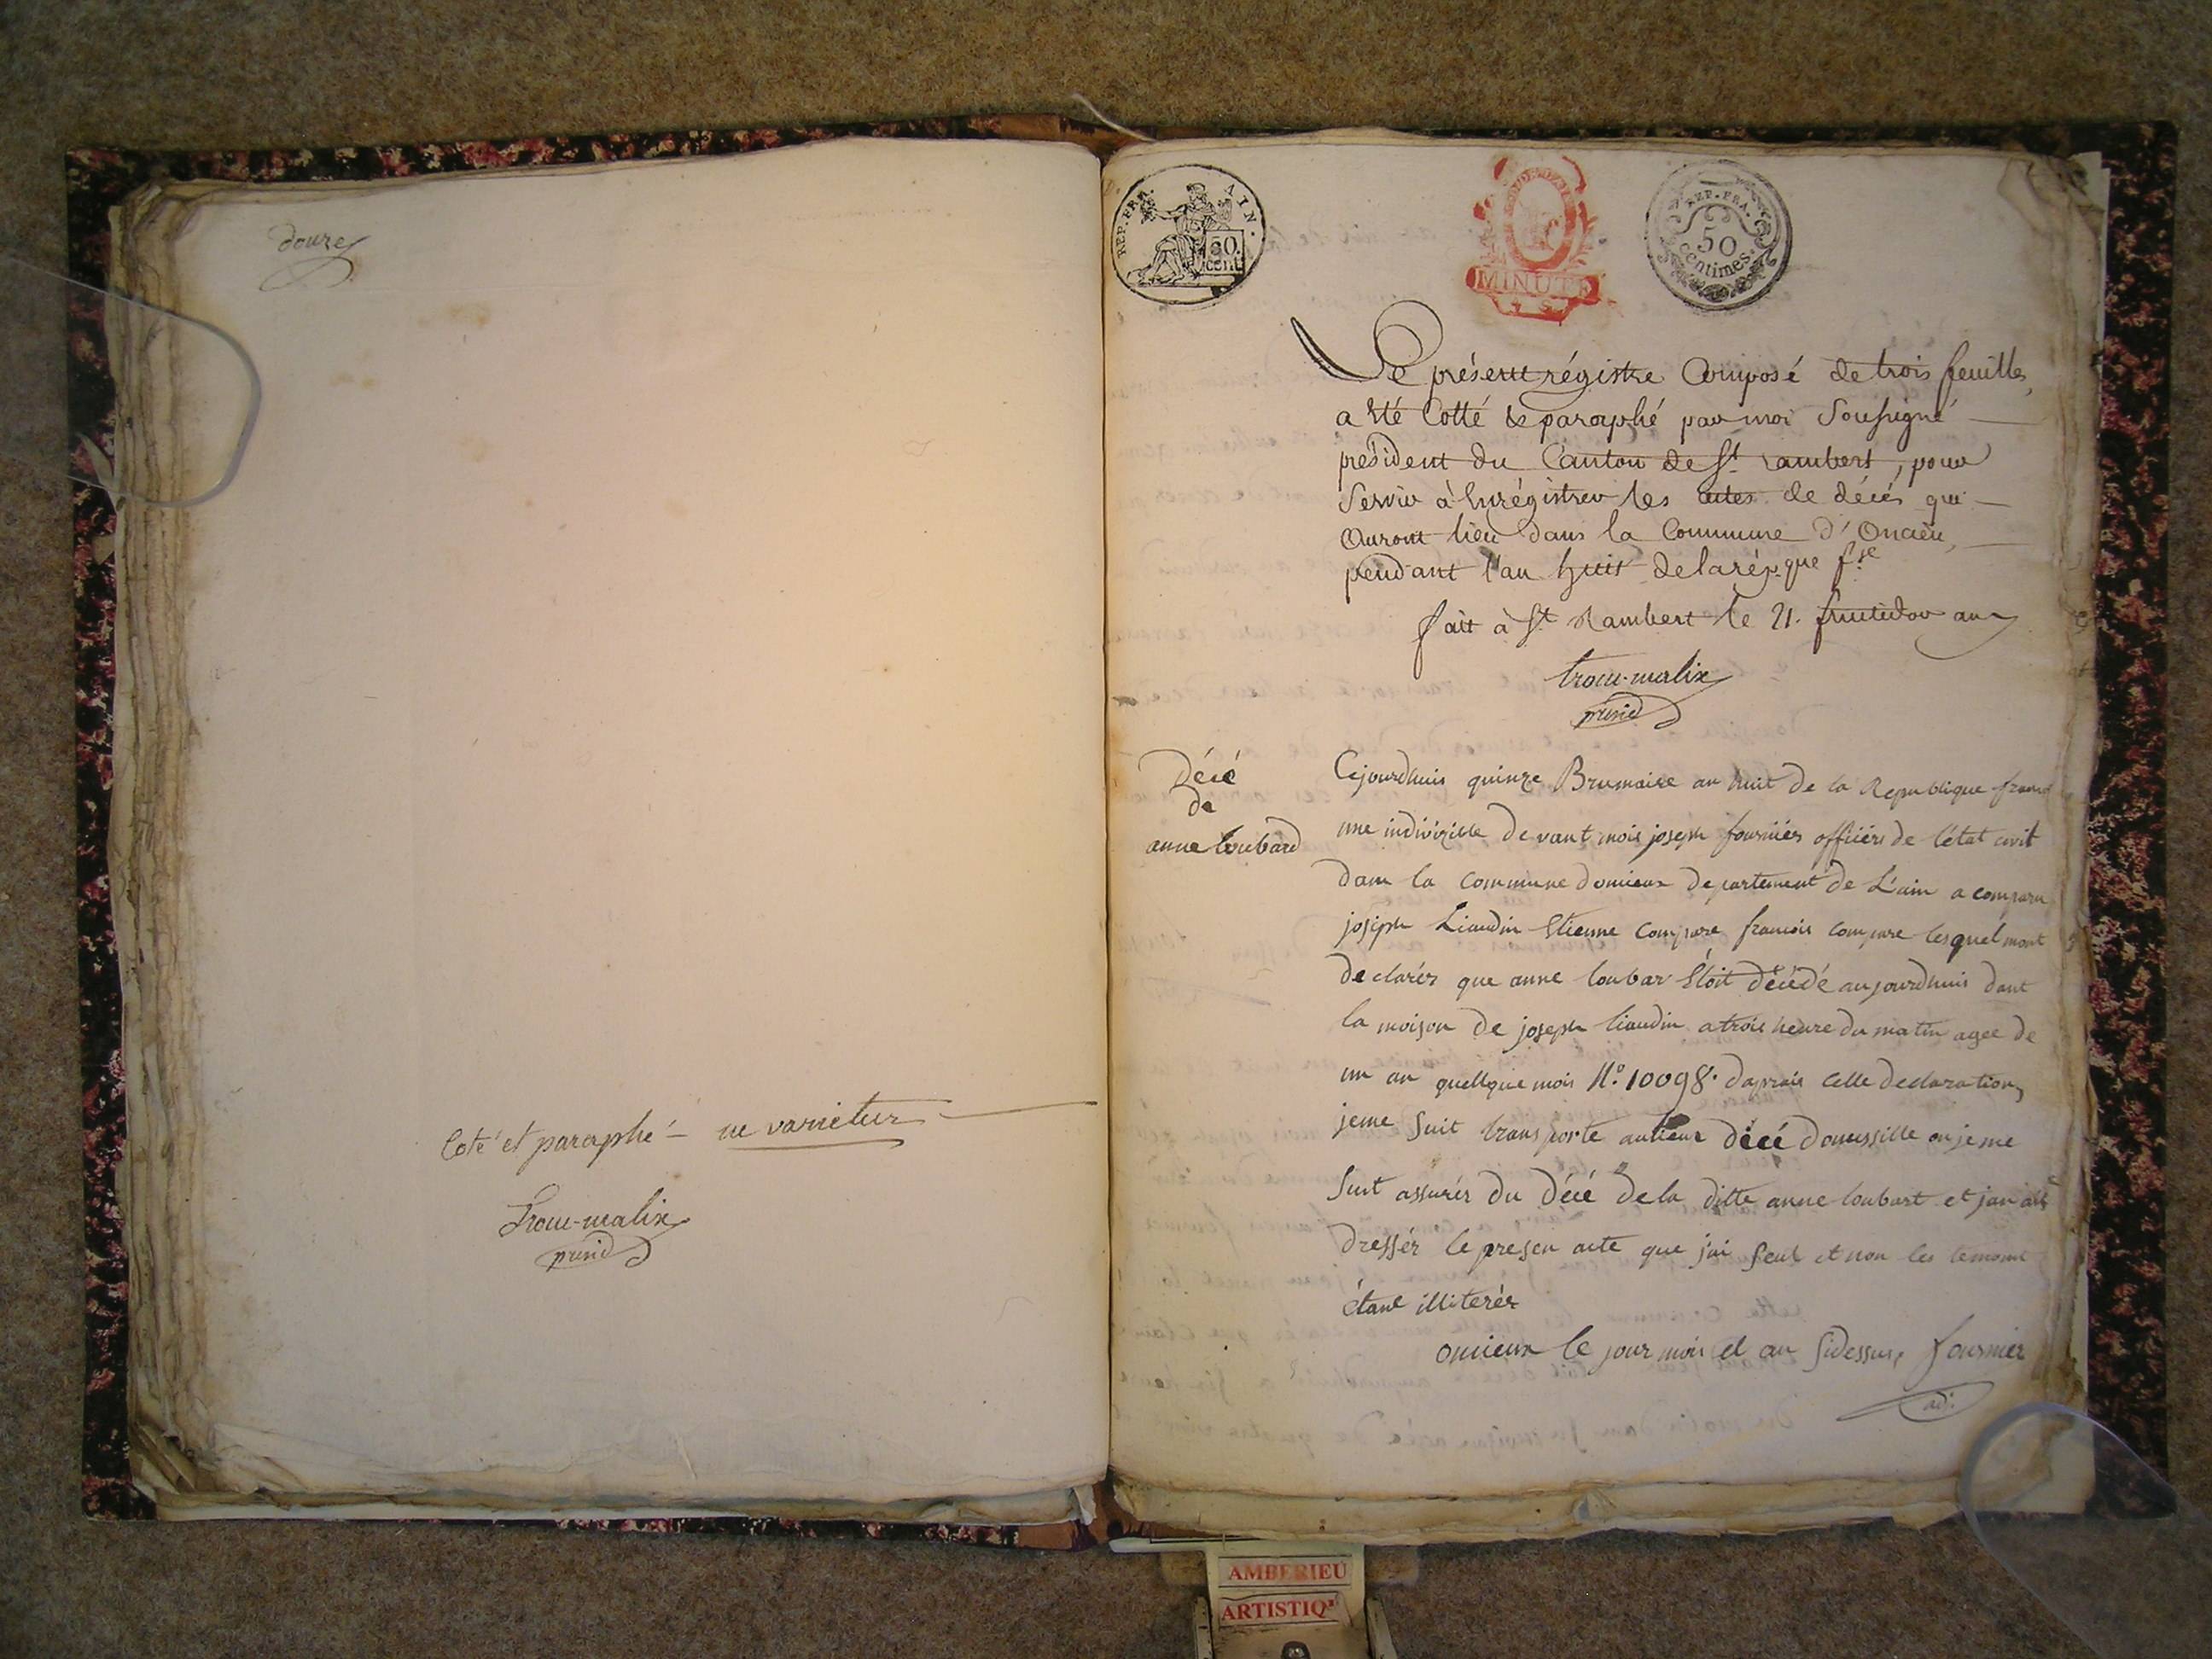 douze
Coté et paraphé – ne varietur
Trocu-malix
présid
REP. FRA. AIN.
50 cent
MINUTE
REP. FRA.
50
centimes.
Le présent régistre Composé de trois feuilles,
a été Cotté & paraphé par moi Soussigné
président du Canton de St. rambert, pour
Servir à Enrégistrer les actes de décés qui
Auront lieu dans la Commune d'Oncieu,
pendant l'an huit de la rép.que f.se
fait à St. Rambert le 21. fructidor an 7
trocu-malix
présid
Décé
de
anne loubard
Cejourdhuis quinze Brumaire an huit de la Republique franc
une indivizible devant mois joseph fourniér officiér de l'état civil
dans la commune doncieux departement de L'ain a comparu
joseph Liaudin Etienne Compare francois compare lesquel mont
declarér que anne loubar Etoit décédé aujourdhuis dant
la moison de joseph liaudin a trois heure du matin agee de
un an quellque mois N.o 10098. daprais cette declaration,
jeme suit transporte aulieux décé domissille ou je me
suit assurér du Décé de la ditte anne loubart et jan ait
dressér le presen acte que jai seul et non les temoint
étant illiterér
oncieux le jour mois et an sidessus, fournier
adj.
AMBERIEU
ARTISTIQ